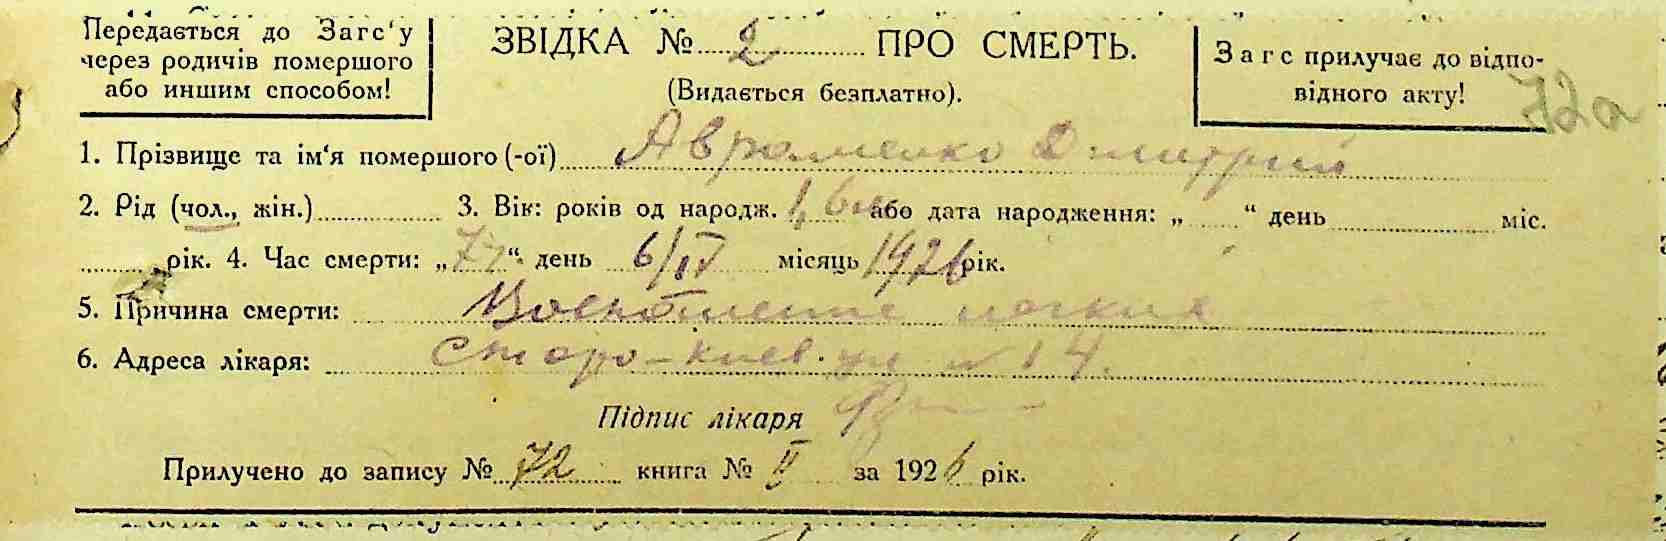 Передається до Загс'у
через родичів помершого
або иншим способом!
ЗВІДКА № 2 ПРО СМЕРТЬ.
(Видається безплатно).
Загс прилучає до відпо-
відного акту!
72а
1. Прізвище та ім'я помершого (-ої) Авраменко Димитрий
2. Рід (чол., жін.) 3. Вік: років од народж. або дата народження: „ “ день міс.
рік. 4. Час смерти: „ “ день 6/IV місяць 1926 рік.
5. Причина смерти: Воспаление легких
6. Адреса лікаря: Старо-Киев. ул № 14.
Підпис лікаря
Прилучено до запису № 72 книга № II за 1926 рік.